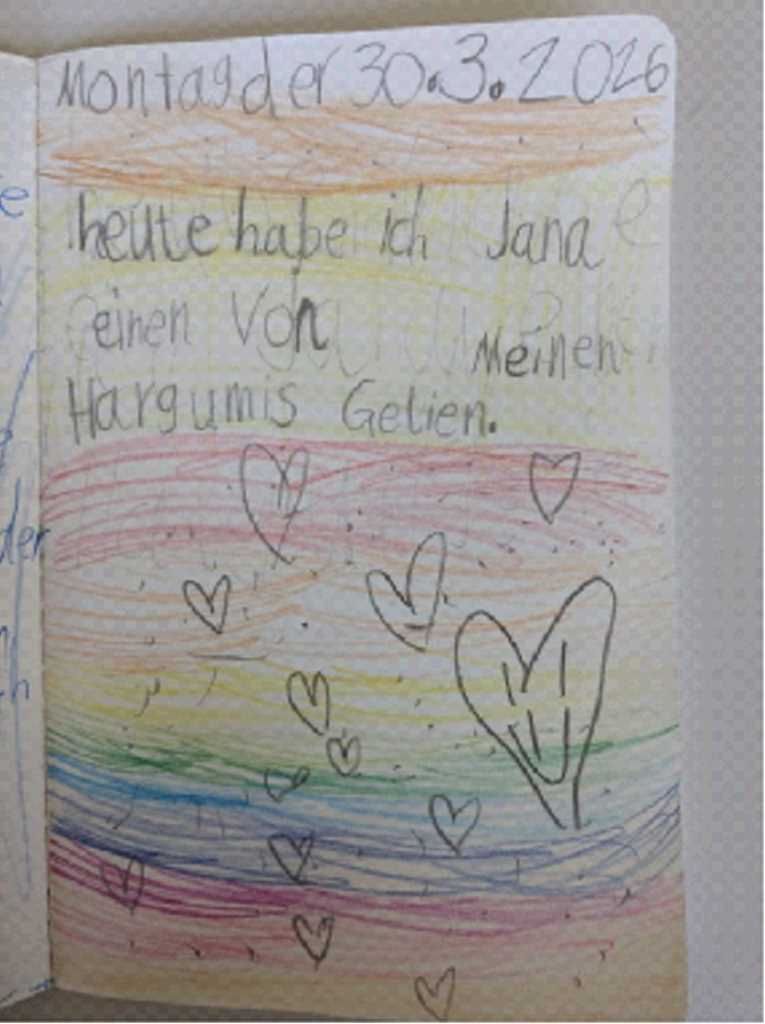 Montag der 30.3.2026
heute habe ich Jana
einen von Meinen
Hargumis Gelien.